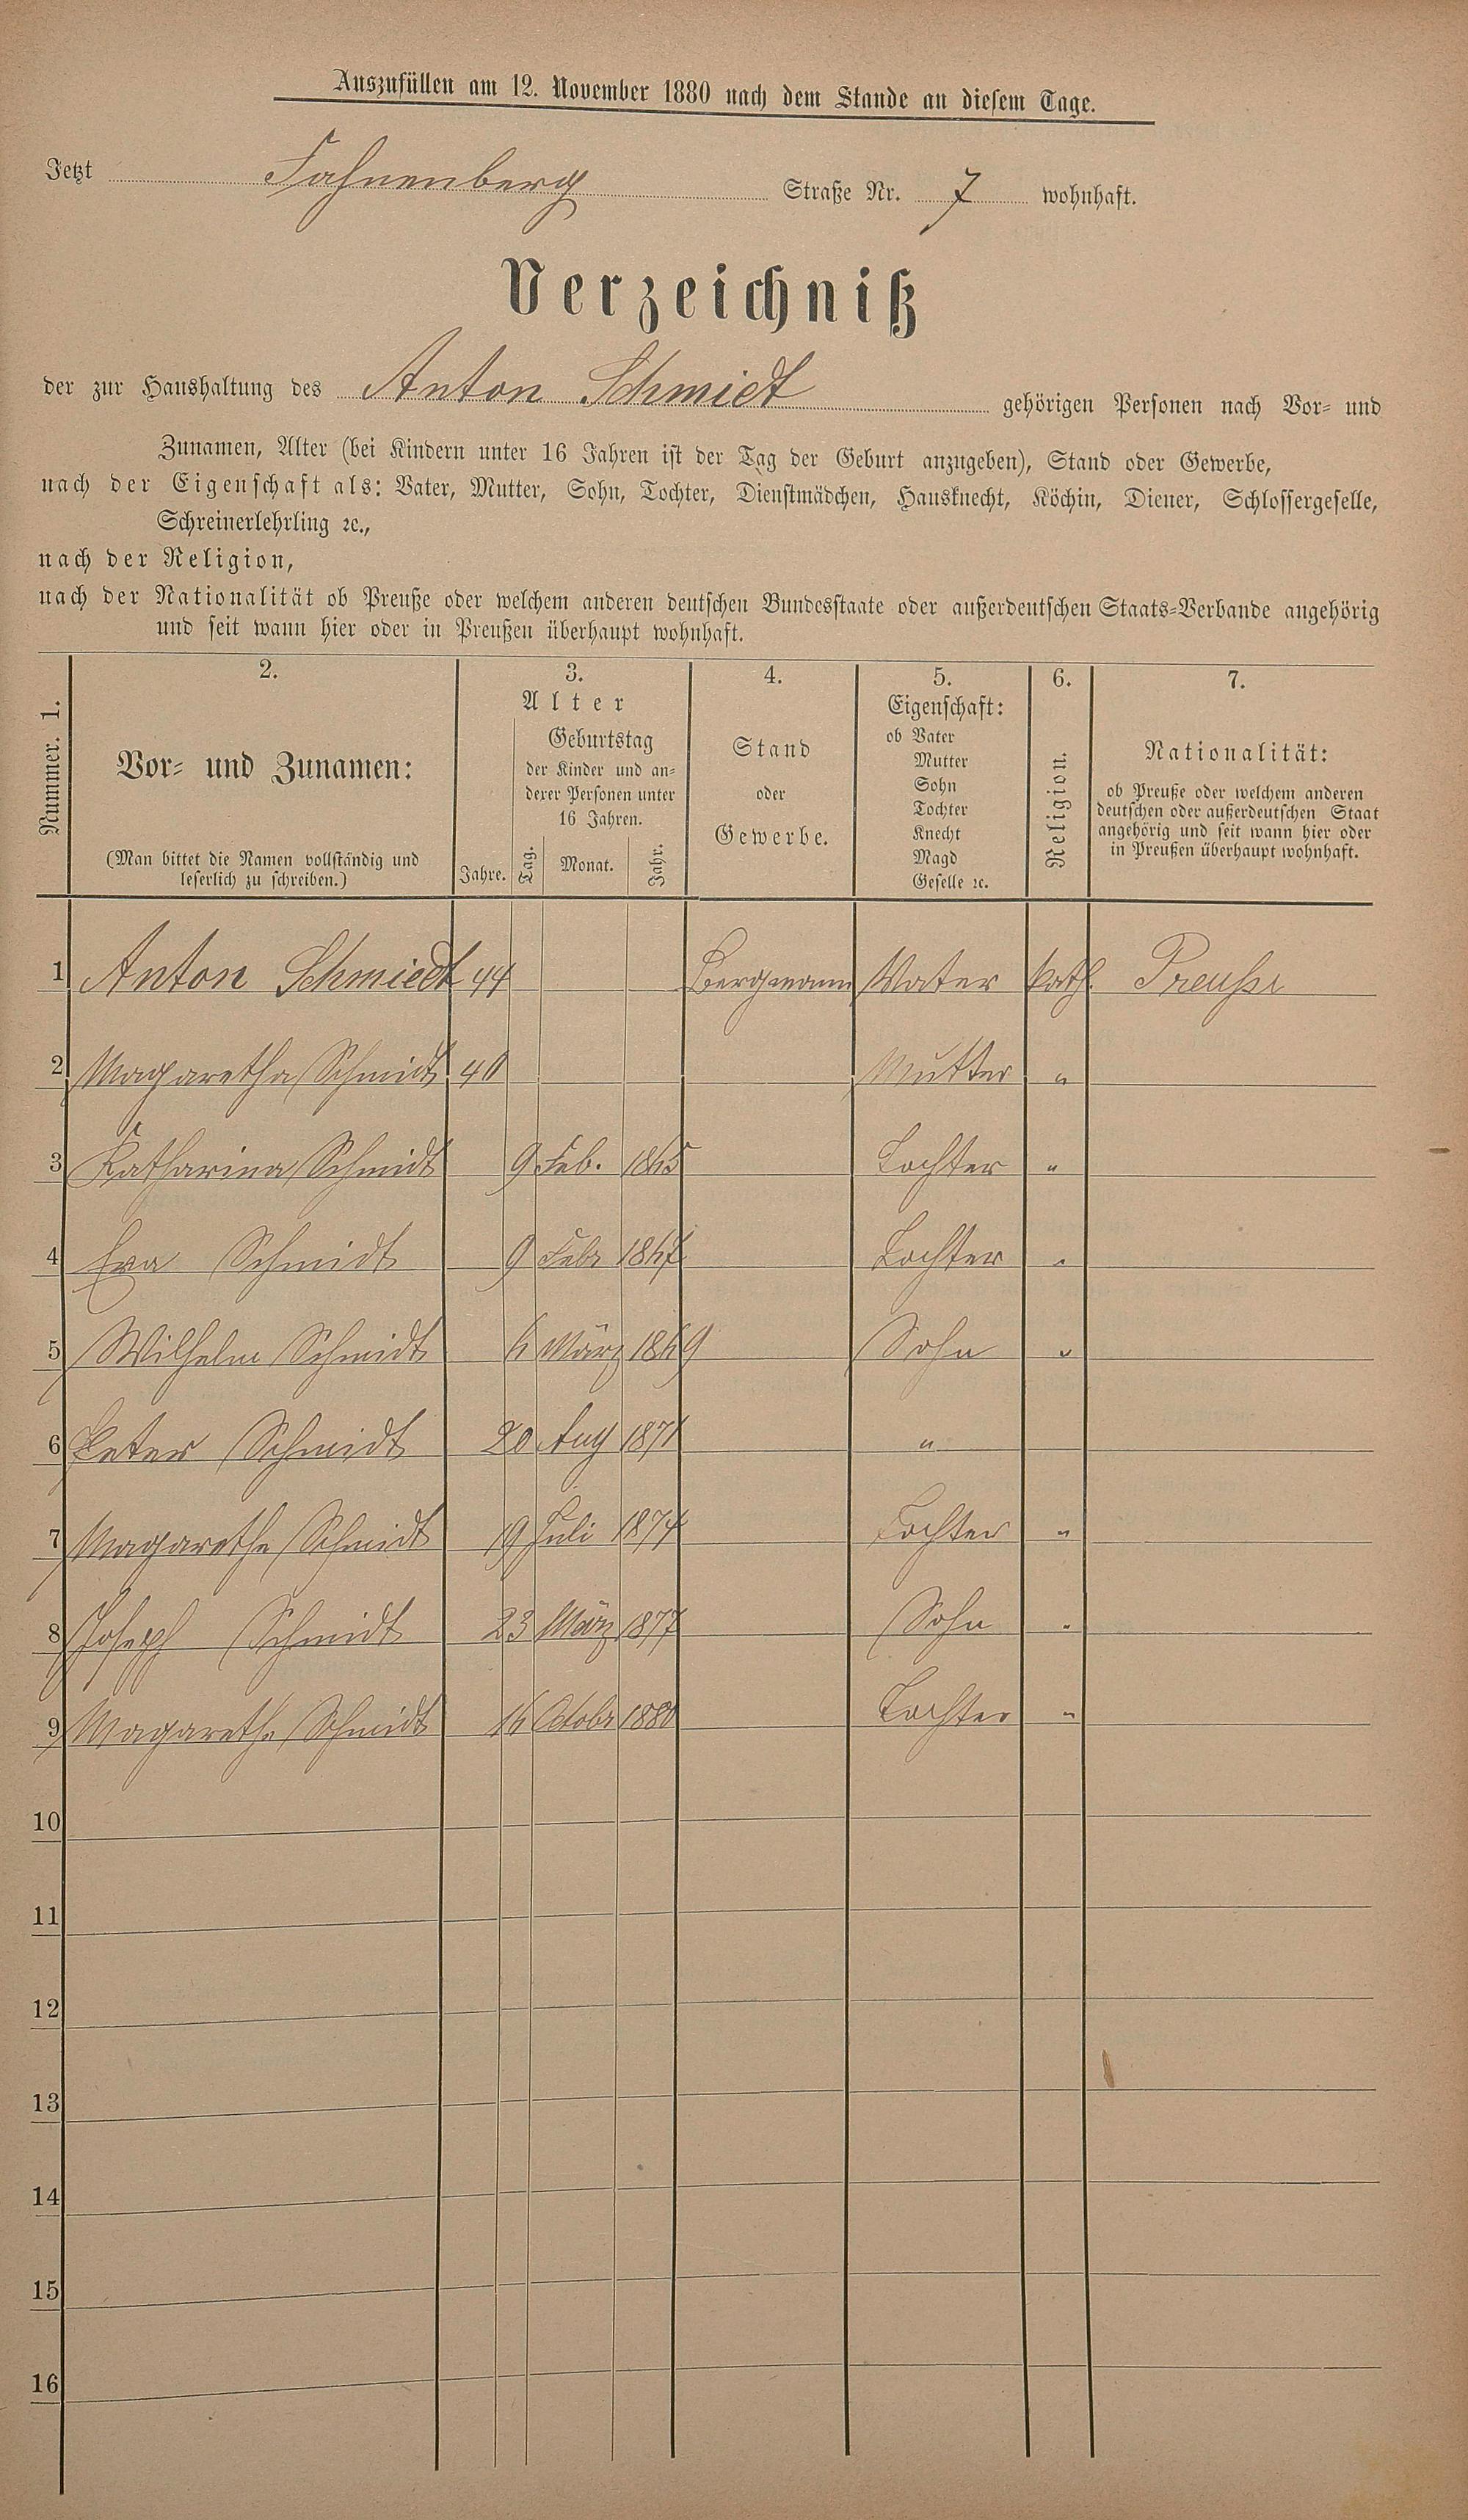 Auszufüllen am 12. November 1880 nach dem Stande an diesem Tage.
Jetzt Fahnenberg Straße Nr. 7 wohnhaft.
Verzeichniß
der zur Haushaltung des Anton Schmidt gehörigen Personen nach Vor- und
Zunamen, Alter (bei Kindern unter 16 Jahren ist der Tag der Geburt anzugeben), Stand oder Gewerbe,
nach der Eigenschaft als: Vater, Mutter, Sohn, Tochter, Dienstmädchen, Hausknecht, Köchin, Diener, Schlossergeselle,
Schreinerlehrling ꝛc.,
nach der Religion,
nach der Nationalität ob Preuße oder welchem anderen deutschen Bundesstaate oder außerdeutschen Staats-Verbande angehörig
und seit wann hier oder in Preußen überhaupt wohnhaft.
Nummer. 1.
2.
Vor- und Zunamen:
(Man bittet die Namen vollständig und
leserlich zu schreiben.)
3.
Alter
Jahre.
Geburtstag
der Kinder und an-
derer Personen unter
16 Jahren.
Tag. Monat. Jahr.
4.
Stand
oder
Gewerbe.
5.
Eigenschaft:
ob Vater
Mutter
Sohn
Tochter
Knecht
Magd
Geselle ꝛc.
6.
Religion.
7.
Nationalität:
ob Preuße oder welchem anderen
deutschen oder außerdeutschen Staat
angehörig und seit wann hier oder
in Preußen überhaupt wohnhaft.
1 Anton Schmiedt 44 Bergmann Vater kath. Preuße
2 Magaretha Schmidt 40 Mutter "
3 Katharina Schmidt 9 Feb. 1865 Tochter "
4 Eva Schmidt 9 Febr 1867 Tochter "
5 Wilhelm Schmidt 6 März 1869 Sohn "
6 Peter Schmidt 20 Aug 1871 "
7 Magarethe Schmidt 19 Juli 1874 Tochter "
8 Joseph Schmidt 23 März 1877 Sohn "
9 Magarethe Schmidt 16 Octobr 1880 Tochter "
10
11
12
13
14
15
16